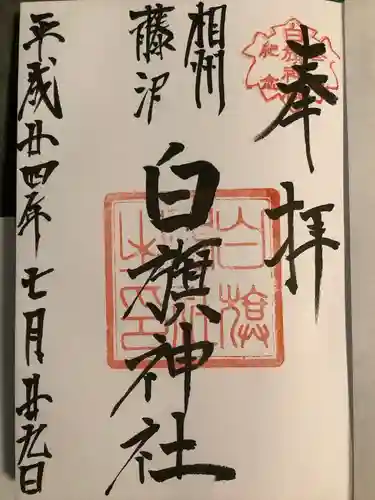 奉拝
相州
藤沢
白旗神社
平成廿四年七月廿九日
白旗神社之印